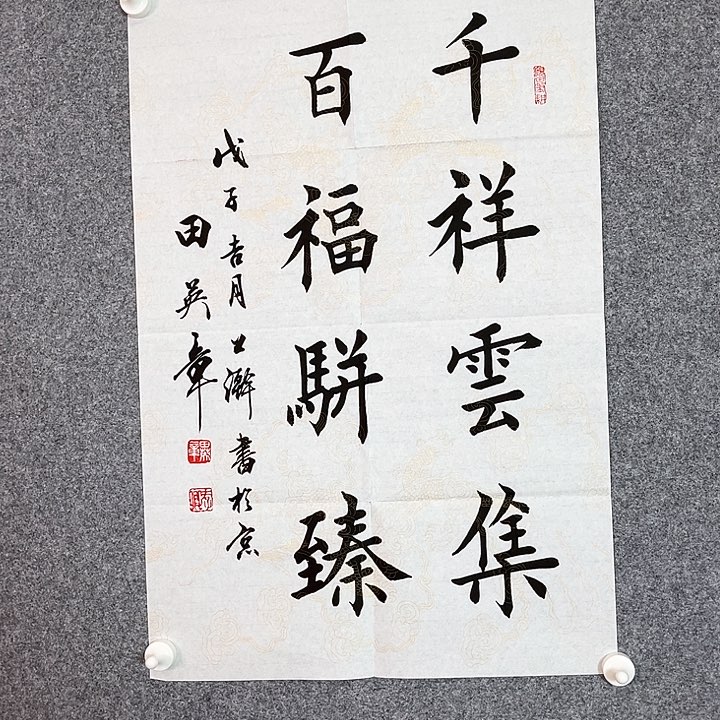 千祥雲集
百福駢臻
戊子吉月
書於京
田英章